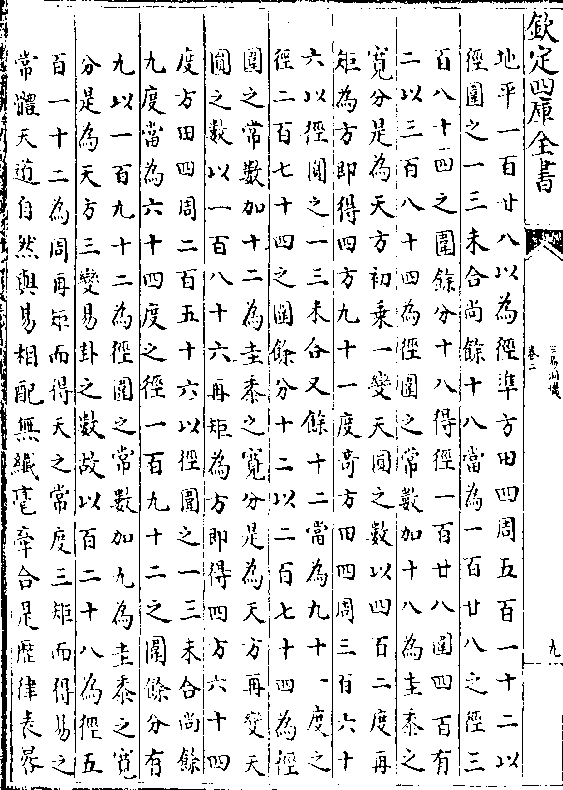 欽定四庫全書
三易洞璣
卷二
九
地平一百廿八以為徑準方田四周五百一十二以
徑圍之一三未合尚餘十八當為一百廿八之徑三
百八十四之圍餘分十八得徑一百廿八圍四百有
二以三百八十四為徑圍之常數加十八為圭黍之
寛分是為天方初乗一變天圓之數以四百二度再
矩為方即得四方九十一度竒方田四周三百六十
六以徑圍之一三未合又餘十二當為九十一度之
徑二百七十四之圍餘分十二以二百七十四為徑
圍之常數加十二為圭黍之寛分是為天方再變天
圓之數以一百八十六再矩為方即得四方六十四
度方田四周二百五十六以徑圍之一三未合尚餘
九度當為六十四度之徑一百九十二之圍餘分有
九以一百九十二為徑圍之常數加九為圭黍之寛
分是為天方三變易卦之數故以百二十八為徑五
百一十二為周再矩而得天之常度三矩而得易之
常體天道自然與易相配無纖毫牽合是厯律表晷